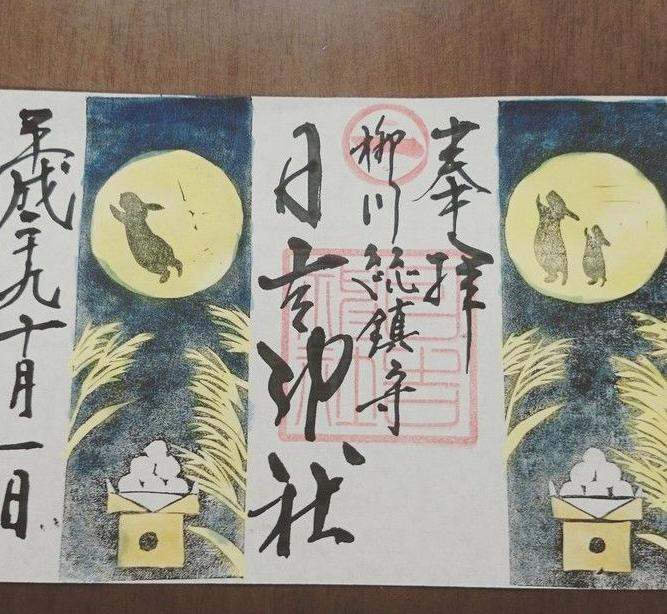 奉拝
柳川総鎮守
日吉神社
平成二十九年十月一日